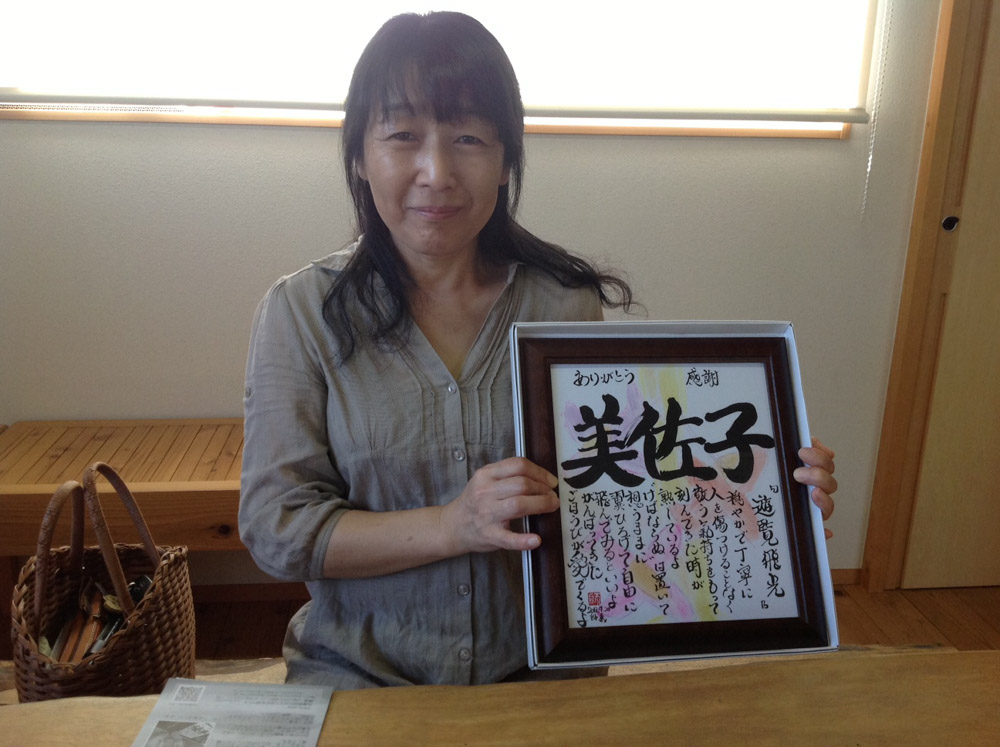 ありがとう 感謝
美佐子
『遊覧飛光』
穏やかで丁寧に
人を傷つけることなく
敬う気持ちをもって
刻んできた時が
熟しているよ
ねばならぬは置いて
想うままに
翼ひろげて自由に
飛んでみるといいよ
がんばってきた
ごほうびが見えてくるよ